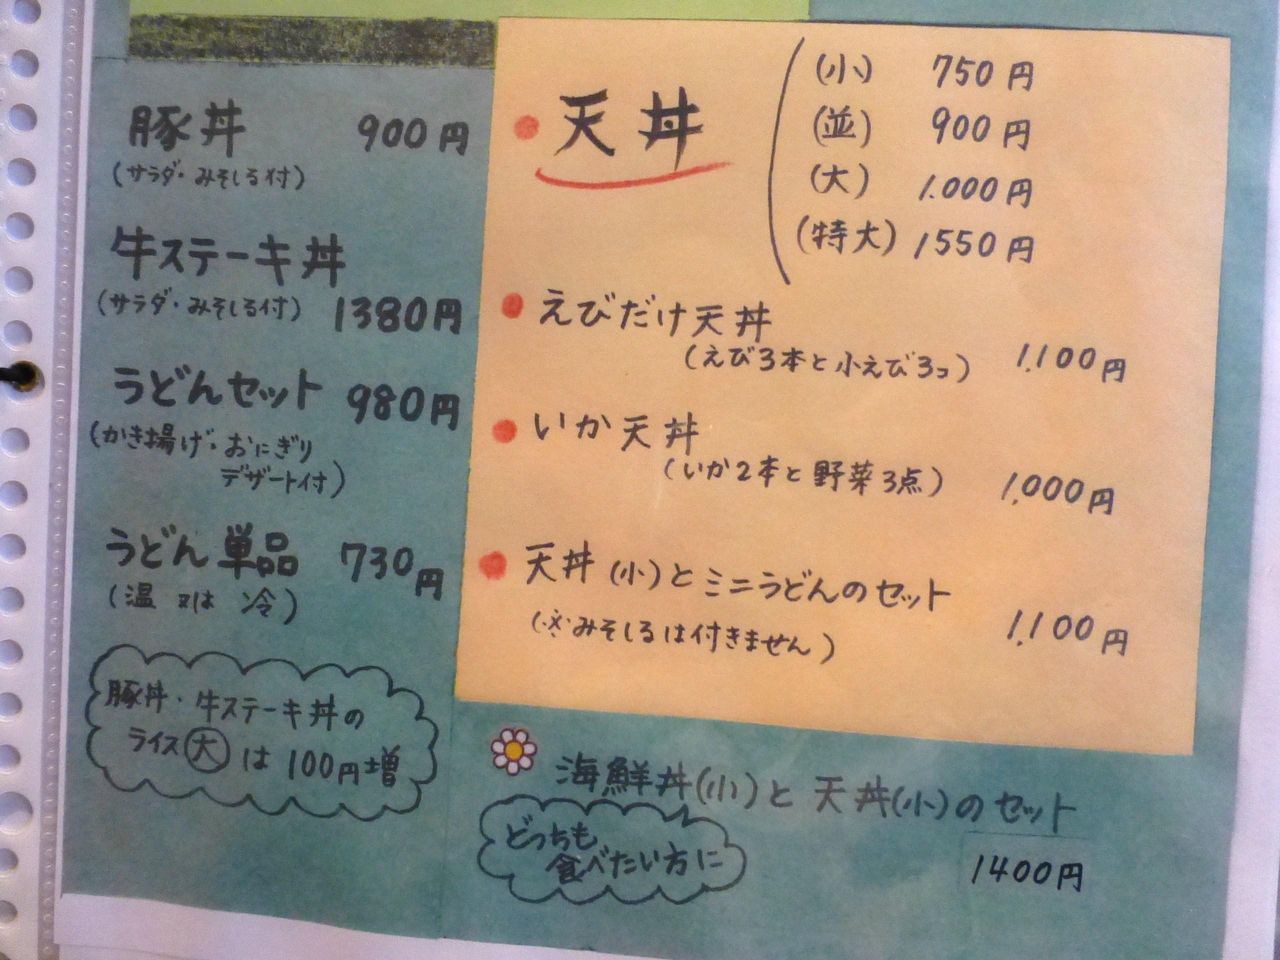 豚丼 900円
(サラダ・みそしる付)
牛ステーキ丼
(サラダ・みそしる付) 1380円
うどんセット 980円
(かき揚げ・おにぎり
デザート付)
うどん単品 730円
(温 又は 冷)
豚丼・牛ステーキ丼の
ライス大は100円増
天丼
(小) 750円
(並) 900円
(大) 1.000円
(特大) 1550円
えびだけ天丼
(えび3本と小えび3コ) 1,100円
いか天丼
(いか2本と野菜3点) 1,000円
天丼(小)とミニうどんのセット
(※みそしるは付きません) 1,100円
海鮮丼(小)と天丼(小)のセット
どっちも
食べたい方に
1400円